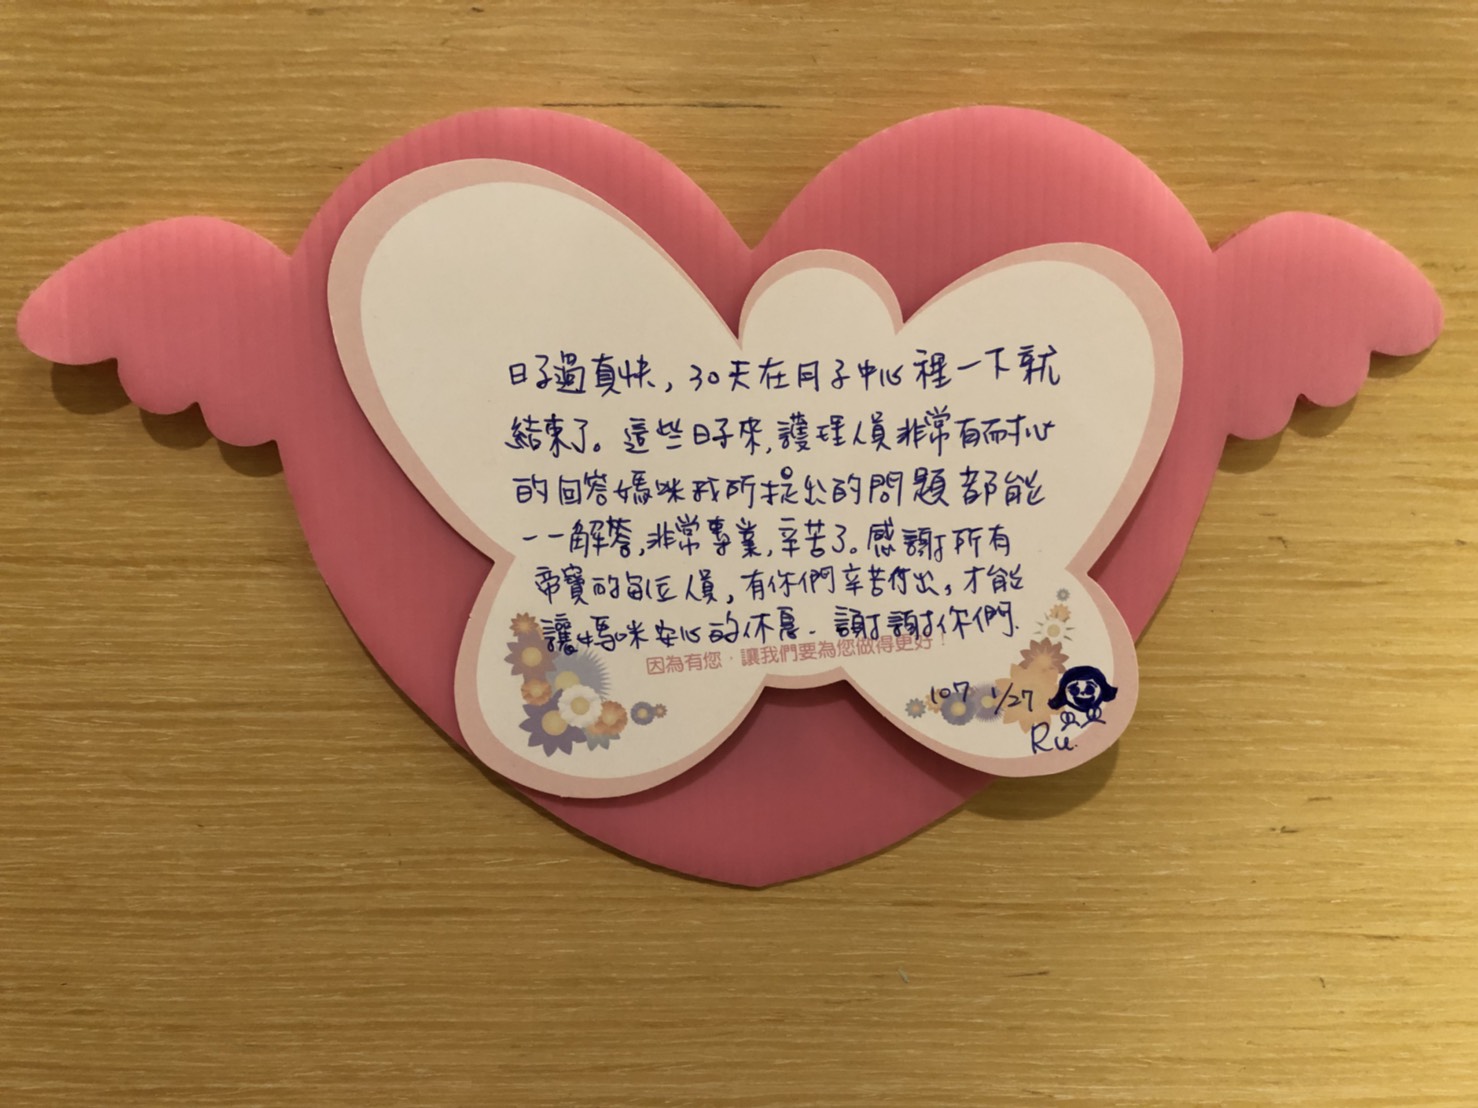 日子過真快，30天在月子中心裡一下就
結束了。這些日子來，護理人員非常有耐心
的回答媽咪我所提出的問題都能
一一解答，非常專業，辛苦了。感謝所有
帝寶的每位人員，有你們辛苦付出，才能
讓媽咪安心的休息．謝謝你們．
因為有您，讓我們要為您做得更好！
107 1/27
Ru.